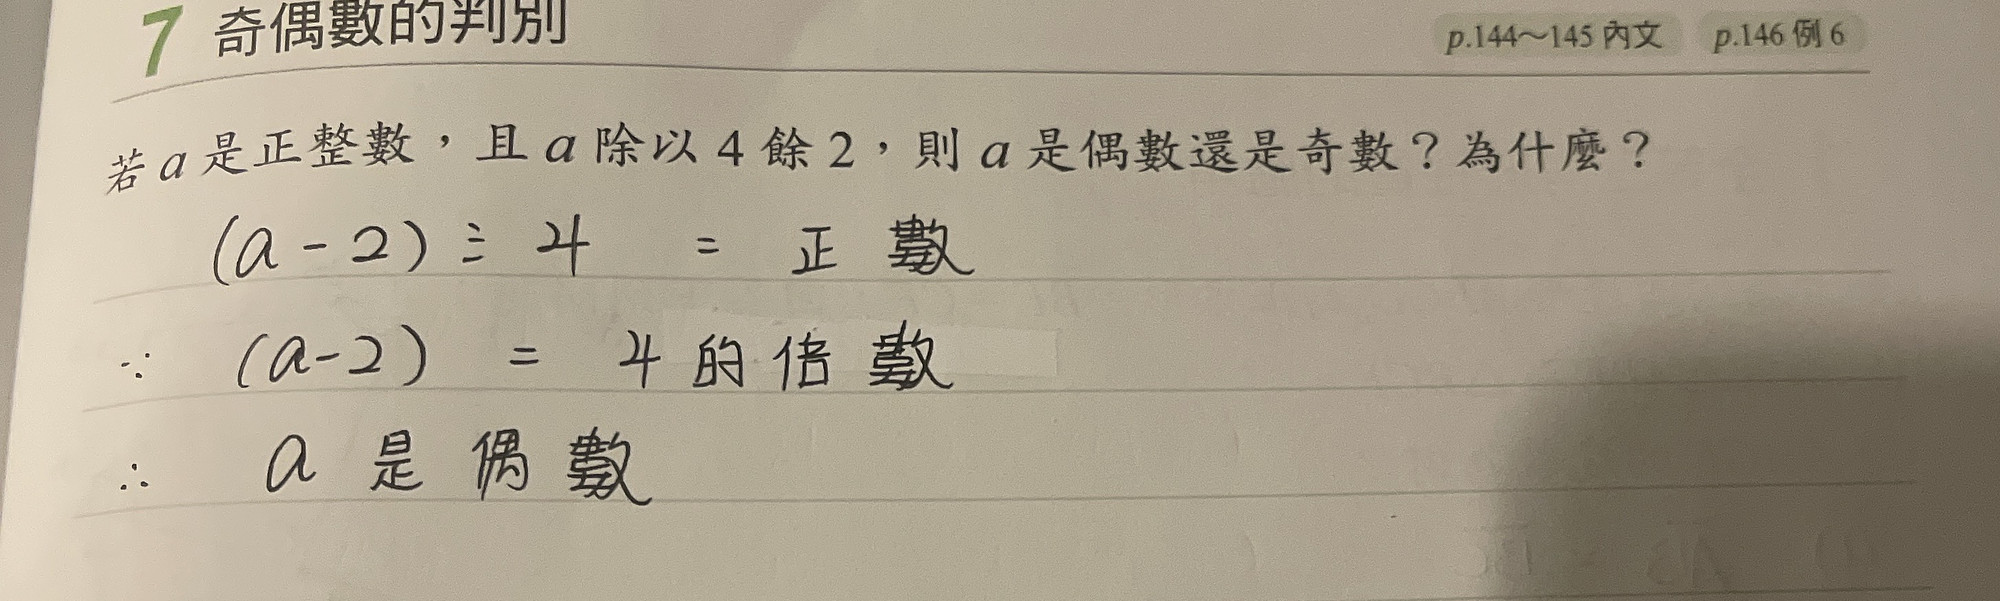 7 奇偶數的判別 p.144～145 內文 p.146 例 6
若 a 是正整數，且 a 除以 4 餘 2，則 a 是偶數還是奇數？為什麼？
(a-2) ÷ 4 = 正數
∵ (a-2) = 4的倍數
∴ a 是偶數